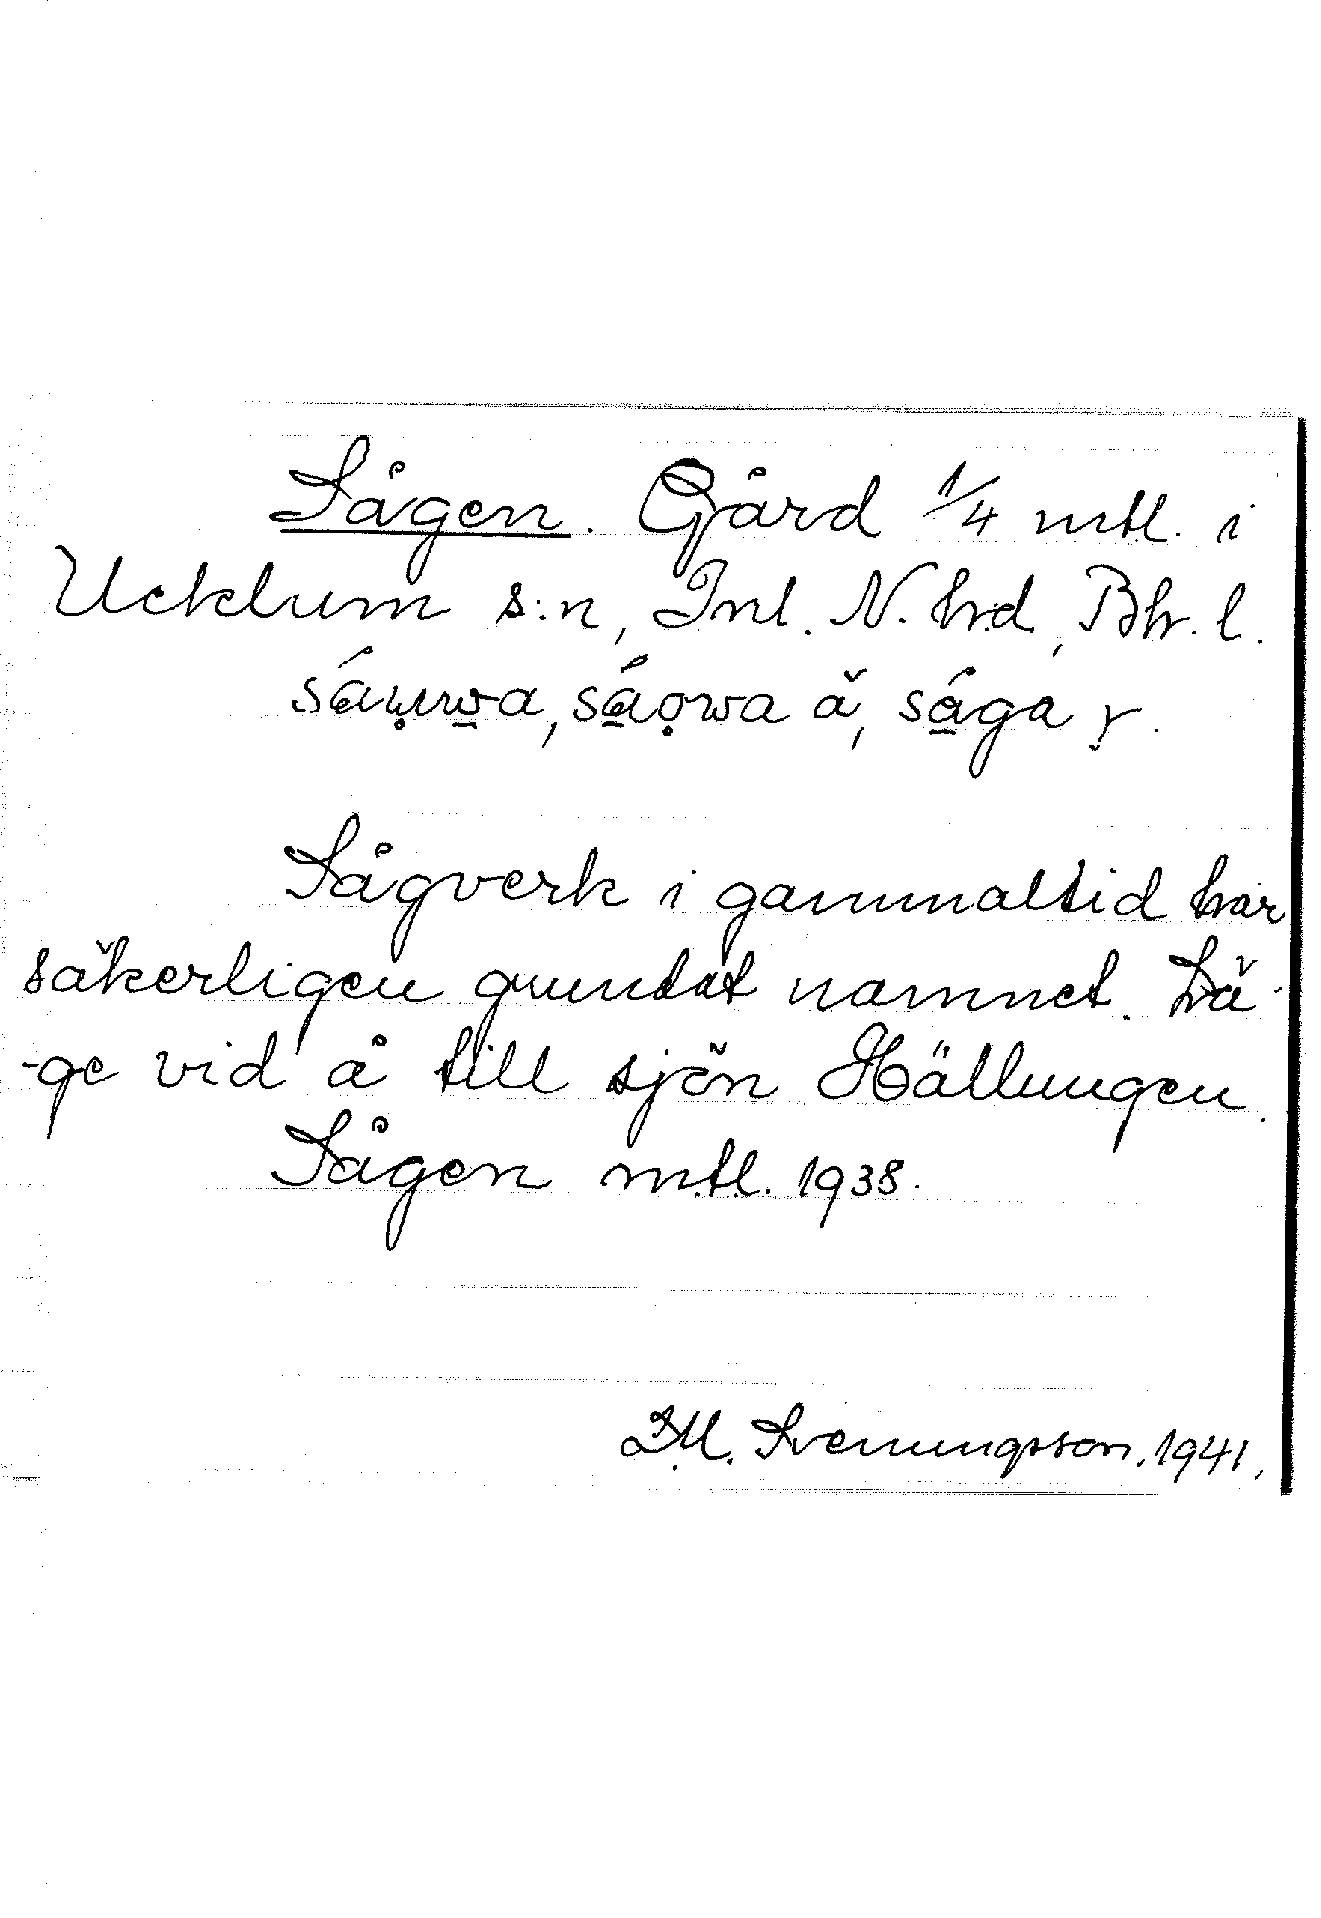 Sågen. Gård 1/4 mtl. i
Ucklum s:n, Inl. N. hd, Bh. l.
ä, såga y.
Sågverk i gammal tid har
säkerligen grundat namnet. Lä-
-ge vid å till sjön Hällungen.
Sågen mtl. 1938.
Svenungsson. 1941.